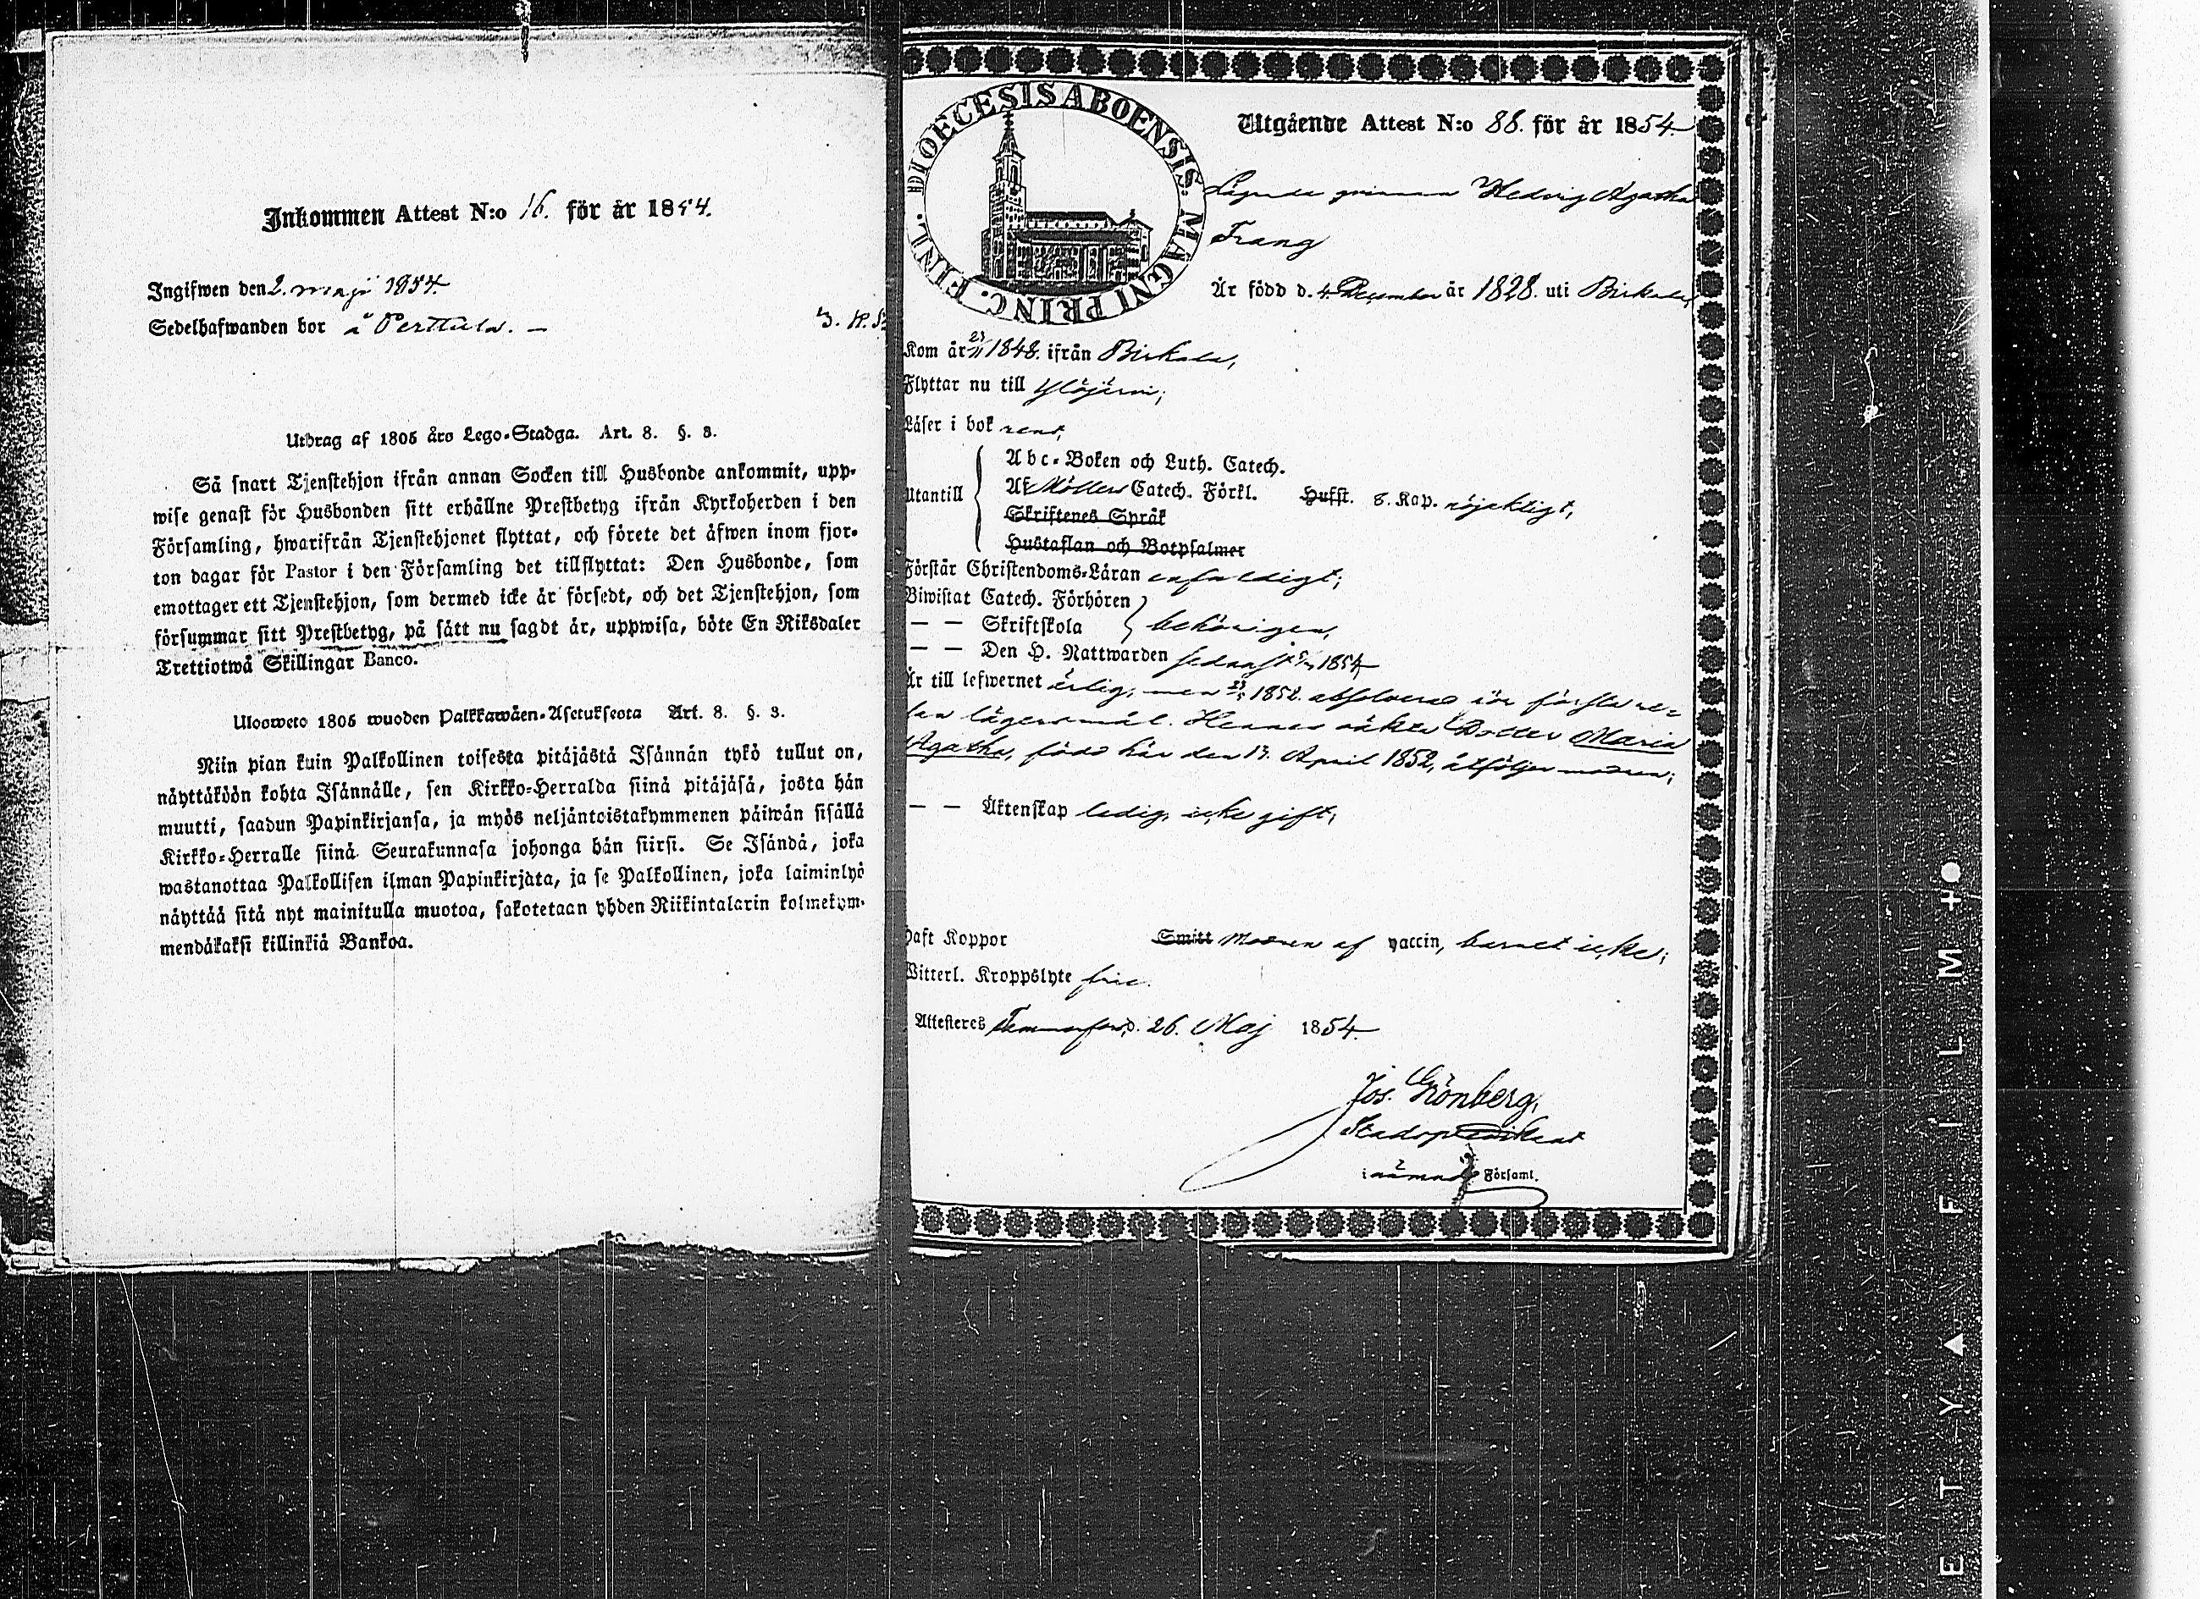 Inkommen Attest N:o 16. för år 1854.
Ingifwen den 2. maji 1854.
Sedelhafwanden bor å Perttula. —
Utdrag af 1805 års Lego-Stadga. Art. 8. §. 3.
Så snart Tjenstehjon ifrån annan Socken till Husbonde ankommit, upp-
wise genast för Husbonden sitt erhållne Prestbetyg ifrån Kyrkoherden i den
Församling, hwarifrån Tjenstehjonet flyttat, och förete det äfwen inom fjor-
ton dagar för Pastor i den Församling det tillflyttat: Den Husbonde, som
emottager ett Tjenstehjon, som dermed icke är försedt, och det Tjenstehjon, som
försummar sitt Prestbetyg, på sätt nu sagdt är, uppwisa, böte En Riksdaler
Trettiotwå Skillingar Banco.
Ulosweto 1805 wuoden Palkkawäen-Asetuksesta Art. 8. §. 3.
Niin pian kuin Palkollinen toisesta pitäjästä Isännän tykö tullut on,
näyttäköön kohta Isännälle, sen Kirkko-Herralda siinä pitäjäsä, josta hän
muutti, saadun Papinkirjansa, ja myös neljäntoistakymmenen päiwän sisällä
Kirkko-Herralle siinä Seurakunnasa johonga hän siirsi. Se Isändä, joka
wastanottaa Palkollisen ilman Papinkirjata, ja se Palkollinen, joka laiminlyö
näyttää sitä nyt mainitulla muotoa, sakotetaan yhden Riikintalarin kolmekym-
mendäkaksi killinkiä Bankoa.
DIOECESIS ABOENSIS. MAGNI PRINC. FINL.
Utgående Attest N:o 88. för år 1854.
Lägrade qvinnan Hedvig Agatha
Frang
Är född d. 4. December år 1828. uti Birkala,
Kom år 23/11 1848. ifrån Birkala,
Flyttar nu till Ylöjärvi;
Läser i bok rent,
Abc-Boken och Luth. Catech.
Utantill Af Möllers Catech. Förkl. Husst. 8. Kap. nöjaktigt,
Skriftenes Språk
Hustaflan och Botpsalmer
Förstår Christendoms-Läran enfaldigt;
Biwistat Catech. Förhören
— — Skriftskola behörigen,
— — Den H. Nattwarden sednast 1854
Är till lefwernet ärlig; men 1852. absolverad för första re-
san lägersmål. Hennes oäkta Dotter Maria
Agatha, född här den 17. April 1852, åtföljer modren;
— — Äktenskap ledig, icke gift,
Haft Koppor Smitt Modren af vaccin, barnet icke;
Witterl. Kroppslyte fri.
Attesteres Tammerfors, d. 26. Maj 1854.
Jos. Grönberg,
Stadspredikant
i nämnde Församl.
E T Y ▲ F I L M +●